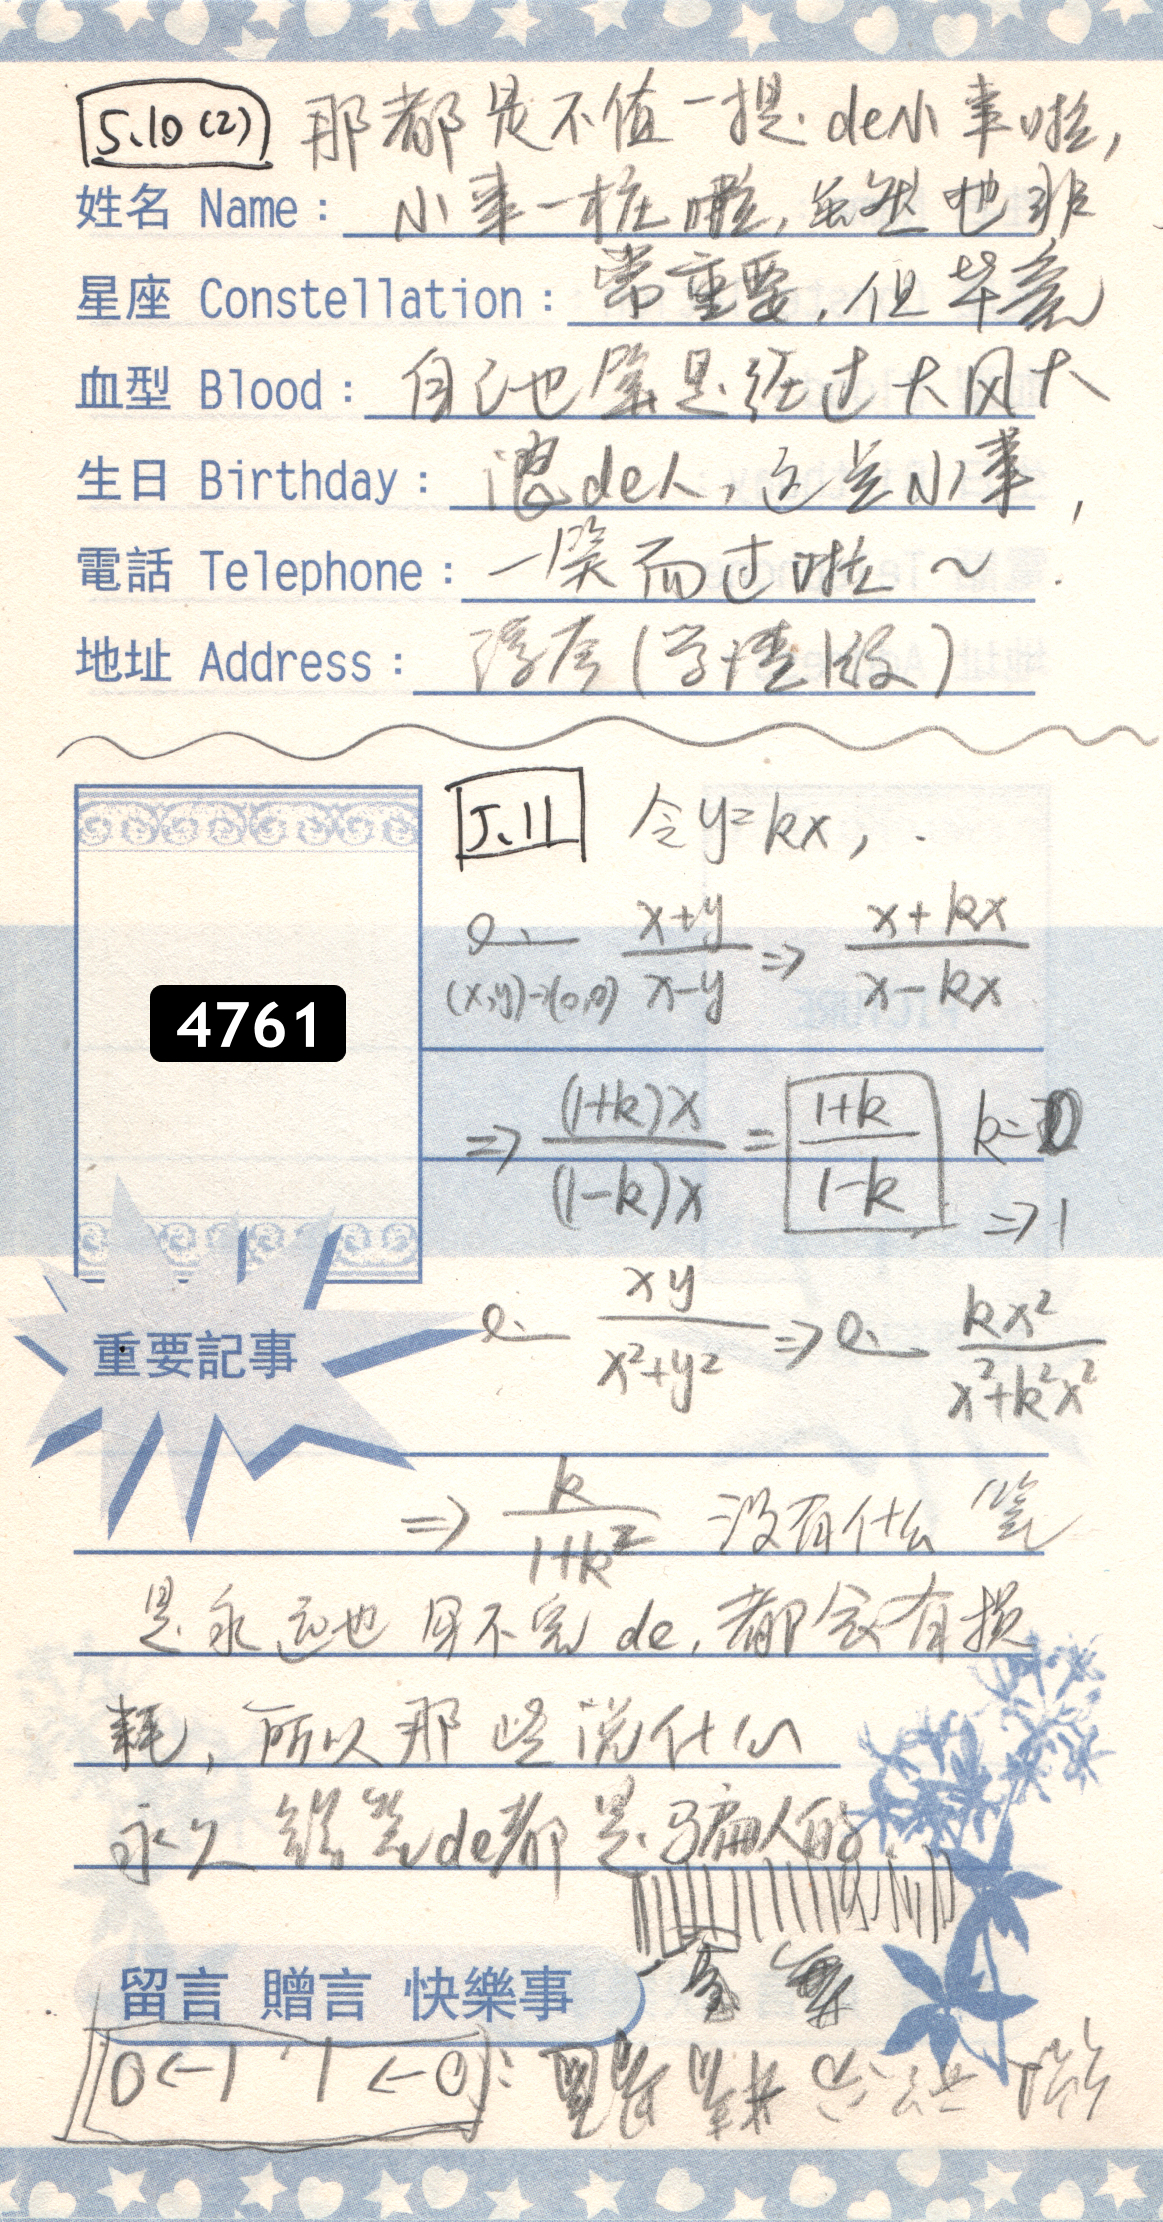 5.10(2) 那都是不值一提de小事啦,
姓名 Name: 小事一桩啦,虽然也非
星座 Constellation: 常重要,但毕竟
血型 Blood: 自己也算是经过大风大
生日 Birthday: 浪de人,这是小事,
電話 Telephone: 一笑而过啦~
地址 Address: (学渣版)
5.11 令y=kx,
(x,y)→(0,0) x+y/x-y => x+kx/x-kx
4761
=> (1+k)x/(1-k)x = 1+k/1-k k=0
=>1
xy/x²+y² => kx²/x²+k²x²
重要記事
=> k/1+k² 没有什么笔
是永远也用不完de,都会有损
耗,所以那些说什么
永久铅笔de都是骗人的
留言 贈言 快樂事
0←1 1←0: